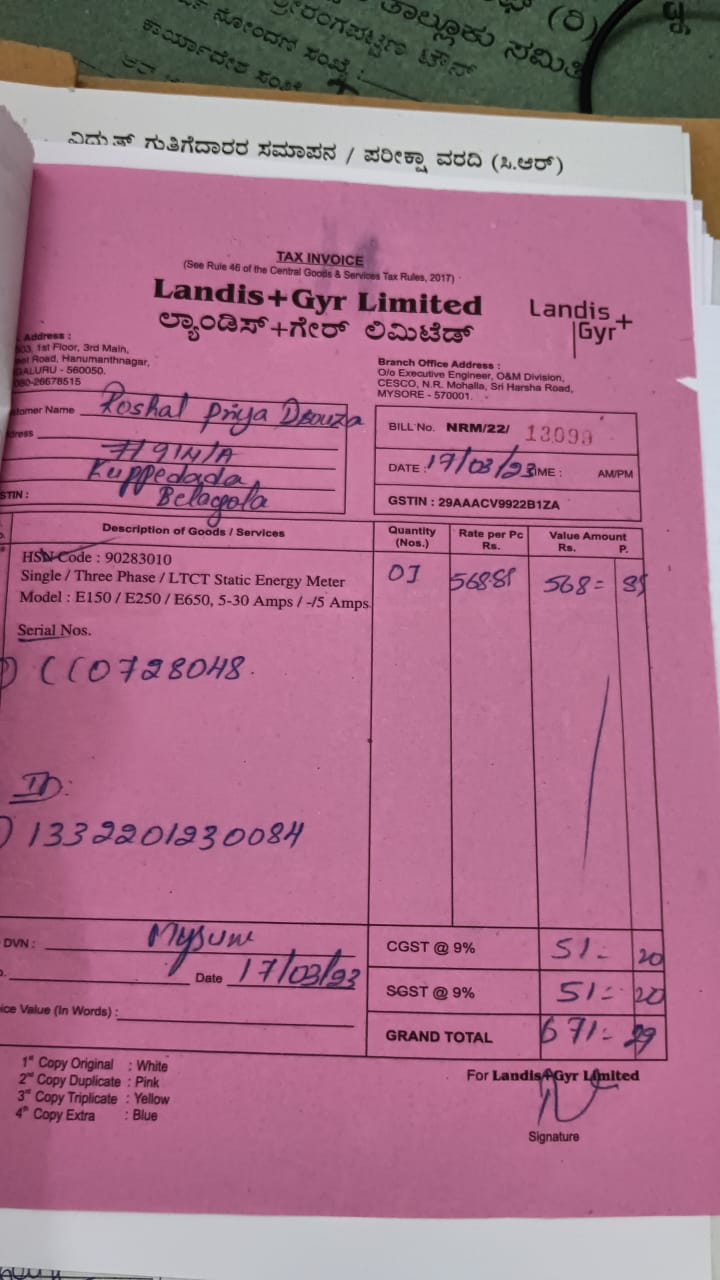 ತಾಲ್ಲೂಕು ಸಮಿತಿ (ರಿ)
ಶ್ರೀರಂಗಪಟ್ಟಣ ಟೌನ್
ನೋಂದಣಿ ಸಂಖ್ಯೆ :
ಗುತಿಗೆದಾರರ ಸಮಾಪನ / ಪರೀಕ್ಷಾ ವರದಿ (ಸಿ.ಆರ್)
TAX INVOICE
(See Rule 46 of the Central Goods & Services Tax Rules, 2017)
Landis+Gyr Limited
ಲ್ಯಾಂಡಿಸ್+ಗೇರ್ ಲಿಮಿಟೆಡ್
Landis+
Gyr
Address :
1st Floor, 3rd Main,
Road, Hanumanthnagar,
GALURU - 560050.
080-26678515
Branch Office Address :
O/o Executive Engineer, O&M Division,
CESCO, N.R. Mohalla, Sri Harsha Road,
MYSORE - 570001.
tomer Name Roshal Priya Dsouza
dress
7/91N/A
Kuppedada
Belagola
STIN :
BILL No. NRM/22/ 13099
DATE : 17/03/23 TIME : AM/PM
GSTIN : 29AAACV9922B1ZA
Description of Goods / Services Quantity (Nos.) Rate per Pc Rs. Value Amount Rs. P.
HSN Code : 90283010
Single / Three Phase / LTCT Static Energy Meter 01 56885 568= 85
Model : E150 / E250 / E650, 5-30 Amps / -/5 Amps
Serial Nos.
CC0728048.
ID:
1332201230084
DVN : Mysuru
Date 17/03/23
ice Value (In Words) :
CGST @ 9% 51= 20
SGST @ 9% 51= 20
GRAND TOTAL 671= 29
1st Copy Original : White
2nd Copy Duplicate : Pink
3rd Copy Triplicate : Yellow
4th Copy Extra : Blue
For Landis+Gyr Limited
Signature